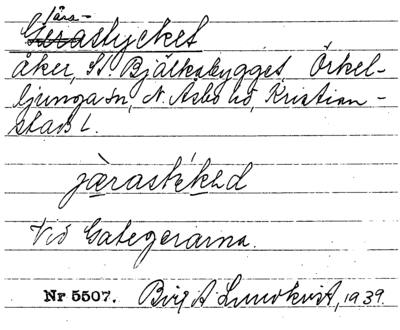 Järas-
Gerastycket
åker, St. Bjälkabygget, Örkel-
ljunga sn, N. Åsbo hd, Kristian-
stads l.
Vid Gategerarna.
Nr 5507. Birgit Lundkvist, 1939.